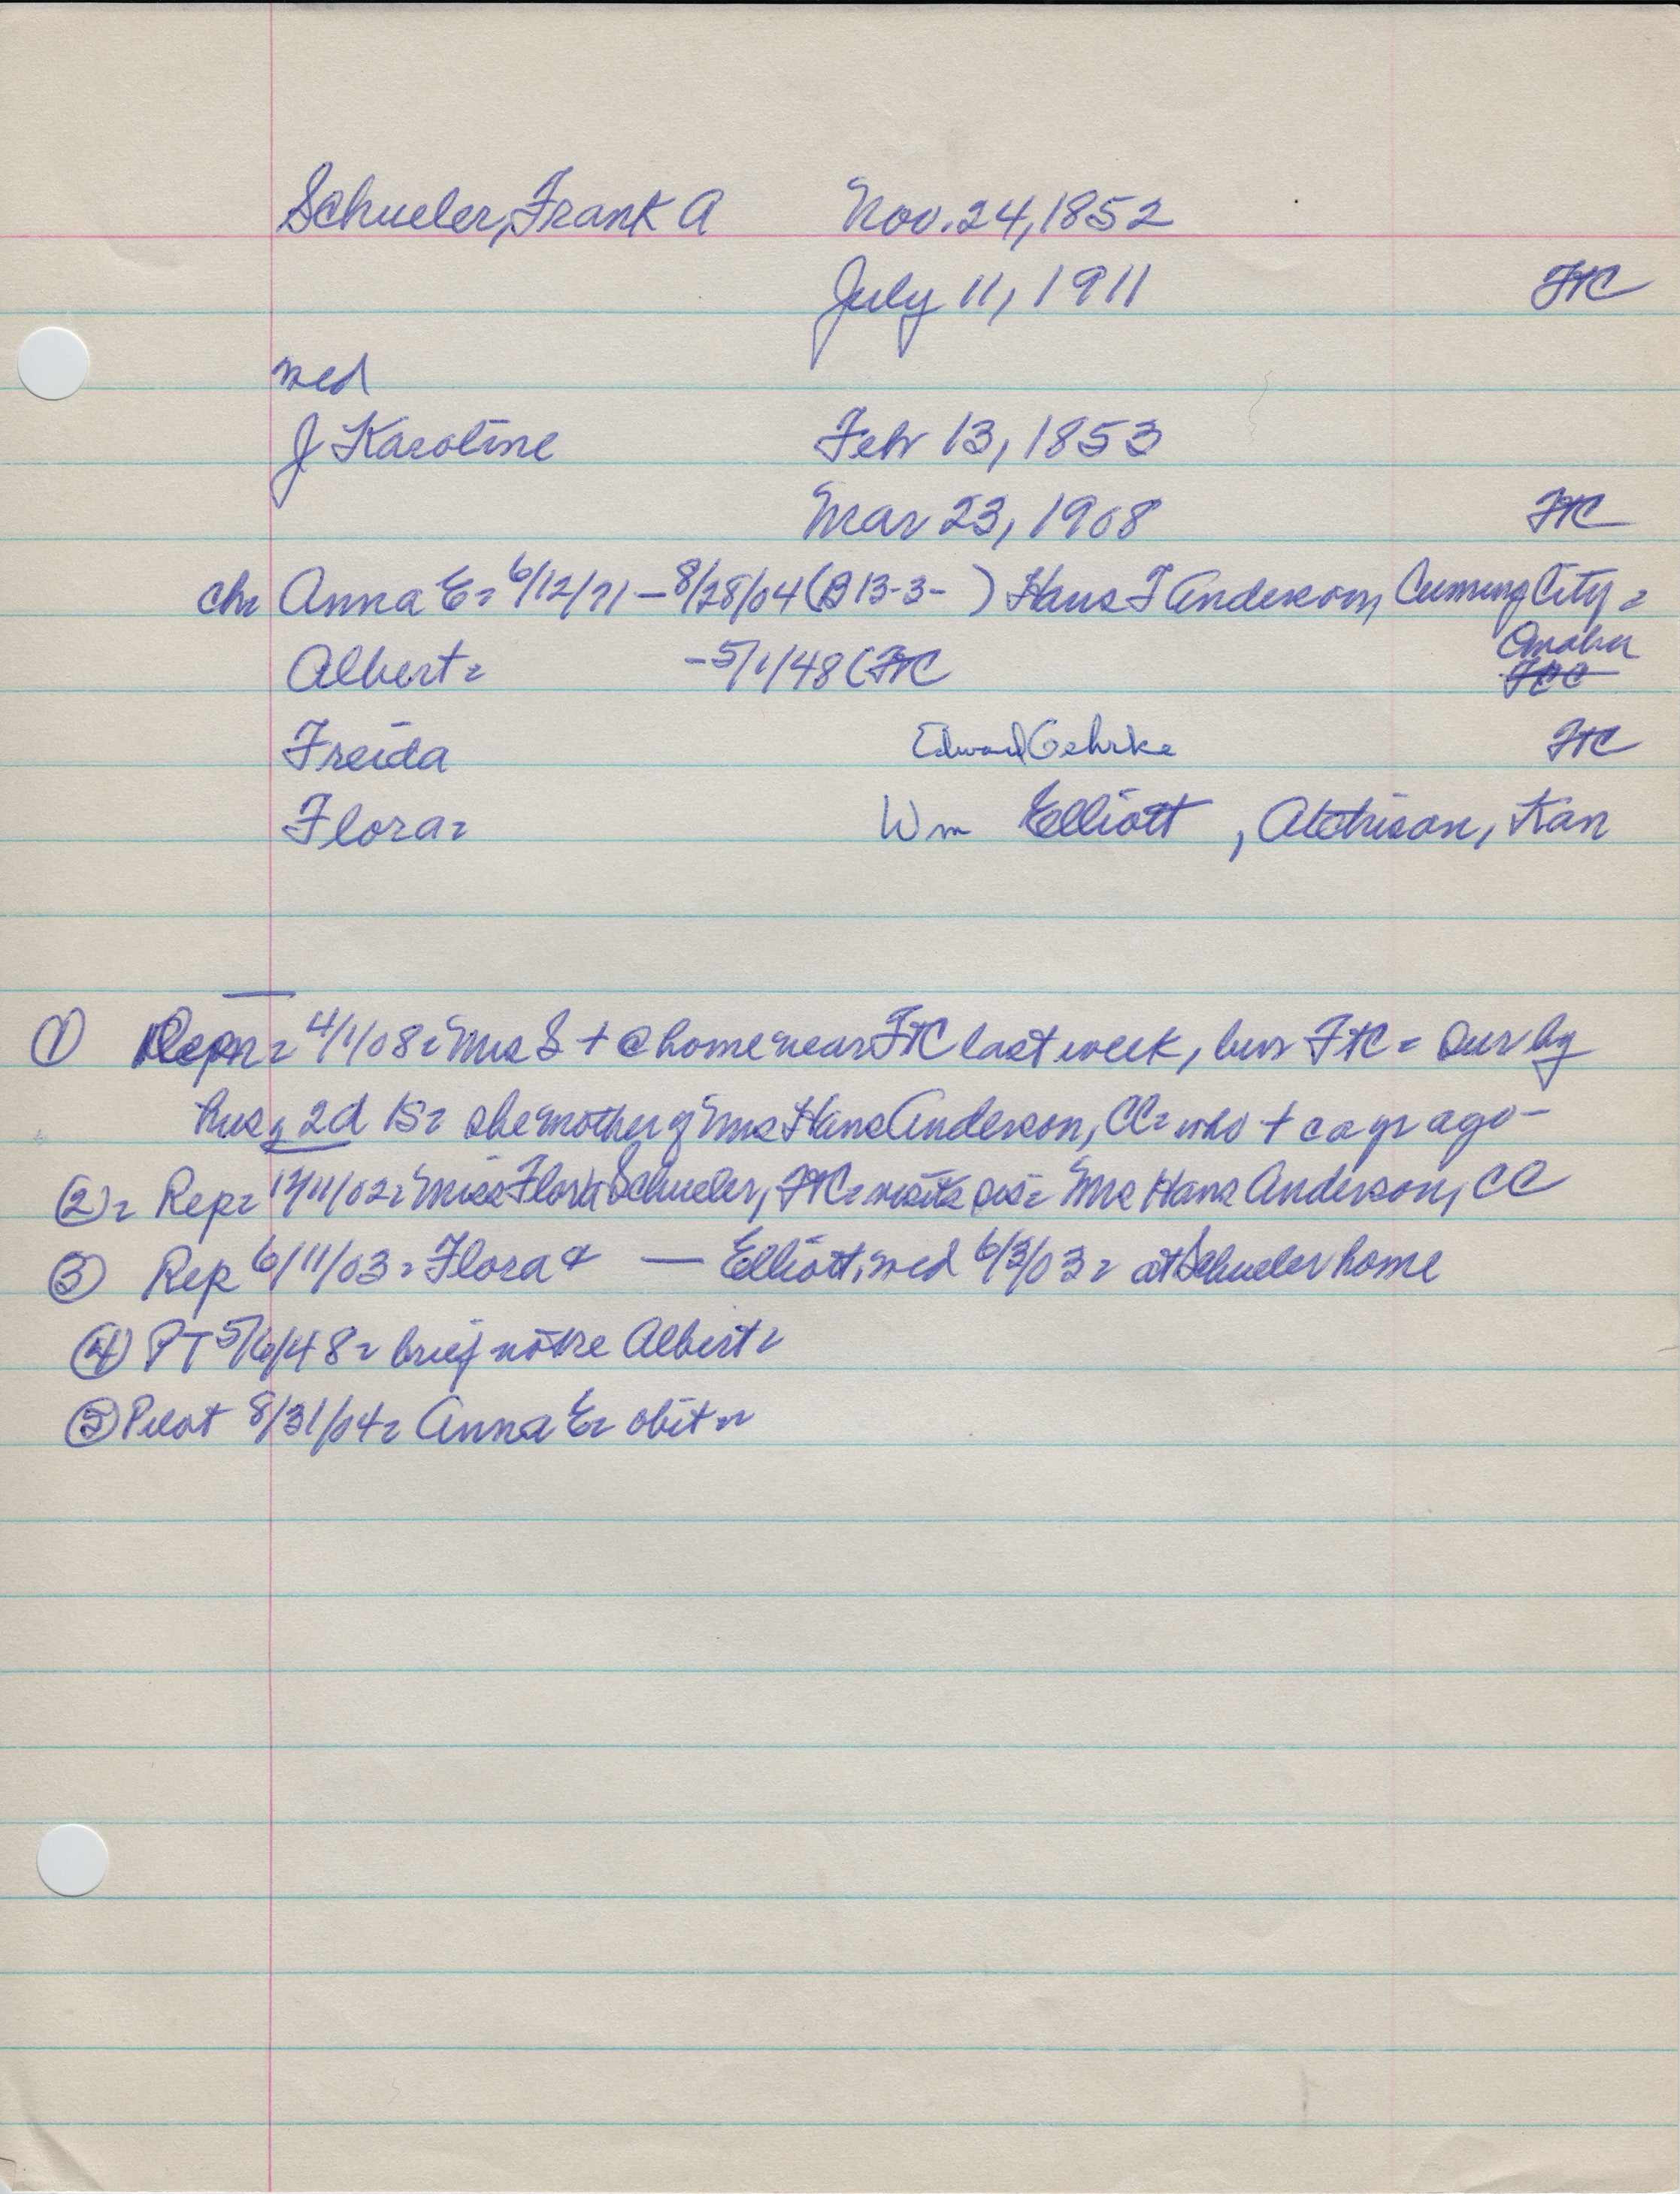 Schueler, Frank A Nov. 24, 1852
July 11, 1911 FtC
med
J Karoline Feb 13, 1853
Mar 23, 1908 FtC
ch Anna E= 6/12/71 – 8/28/04 (B 13-3- ) Hans F Anderson, Cuming City =
Omaha
Albert = -5/1/48 (FtC FCC
Freida Edward Gehrke FtC
Flora = Wm Elliott , Atchison, Kan
① Rep = 4/1/08 = Mrs S + @ home near FtC last week, bur FtC = Sur by
hus & 2d 1s = she mother of Mrs Hans Anderson, CC = who + ca yr ago –
② = Rep = 12/11/02 = Miss Flora Schueler, FtC = visits sis = Mrs Hans Anderson, CC
③ Rep 6/11/03 = Flora & — Elliott, med 6/3/03 = at Schueler home
④ PT 5/6/48 = brief not re Albert =
⑤ Pilot 8/31/04 = Anna E = obit